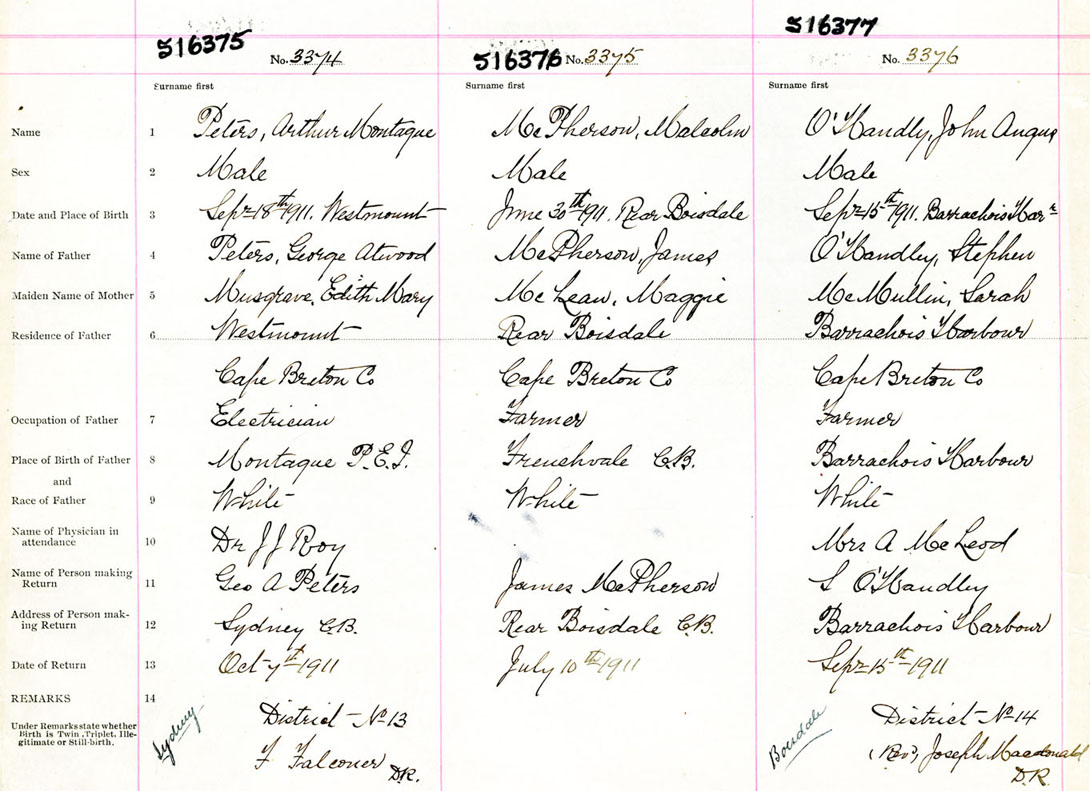 516375 516376 516377
No. 3374 No. 3375 No. 3376
Surname first Surname first Surname first
Name 1 Peters, Arthur Montague McPherson, Malcolm O'Handly, John Angus
Sex 2 Male Male Male
Date and Place of Birth 3 Sepr 18th 1911. Westmount June 30th 1911. Rear Boisdale Sepr 15th 1911. Barrachois Harr
Name of Father 4 Peters, George Atwood McPherson, James O'Handley, Stephen
Maiden Name of Mother 5 Musgrave, Edith Mary McLean, Maggie McMullin, Sarah
Residence of Father 6 Westmount Rear Boisdale Barrachois Harbour
Cape Breton Co Cape Breton Co Cape Breton Co
Occupation of Father 7 Electrician Farmer Farmer
Place of Birth of Father 8 Montague P.E.I. Frenchvale C.B. Barrachois Harbour
and
Race of Father 9 White White White
Name of Physician in
attendance 10 Dr J J Roy Mrs A McLeod
Name of Person making
Return 11 Geo A Peters James McPherson S O'Handley
Address of Person mak-
ing Return 12 Sydney C.B. Rear Boisdale C.B. Barrachois Harbour
Date of Return 13 Oct 7th 1911 July 10th 1911 Sepr 15th 1911
REMARKS 14
Under Remarks state whether
Birth is Twin, Triplet, Ille-
gitimate or Still-birth.
Sydney District No 13 Boisdale District No 14
F Falconer (Rev) Joseph Macdonald
D.R. D.R.